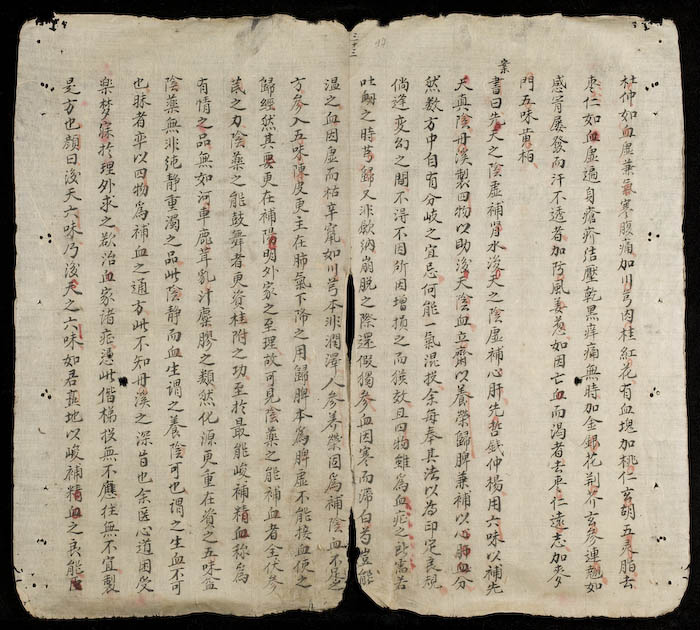 三十三
杜仲如血虛兼氣寒腹痛加川芎肉桂紅花有血塊加桃仁玄胡五灵脂去
枣仁如血虛遍身瘡疥结壓乾黑痒痛無時加金銀花荆芥玄參連翹如
感冒屡發而汗不透者加防風姜葱如因亡血而渴者去枣仁遠志加麥
門五味黄柏
業
書曰先天之陰虛補肾水後天之陰虛補心肝先哲錢仲楊用六味以補先
天真陰丹溪製四物以助後天陰血立齋以養榮歸脾兼補以心肺血分
然数方中自有分岐之宜忌何能一氣混投余每奉其法以為印定良規
倘逢变幻之間不得不因所因增損之而候效且四物雖為血症之即需若
吐衄之時芎歸又非飲納崩脱之際還假獨參血因寒而滞白芍豈能
温之血因虛而枯辛竄如川芎本非潤澤人參養榮因為補陰血不足之
方參入五味陳皮更主在肺氣下降之用歸脾本為脾虛不能接血使之
歸經然其要更在補陽明外家之至理故可見陰藥之能補血者全伏參
芪之力陰藥之能鼓舞者更資桂附之功至於最能峻補精血称為
有情之品無如河車鹿茸乳汁虛膠之類然化源更重在資之五味盖
陰藥無非純静重濁之品此陰静而血生謂之養陰可也謂之生血不可
也昧者率以四物為補血之通方此不知丹溪之深旨也余医心道困受
樂梦寐於理外求之欲治血家諸症憑此偕梯投無不應往無不宜製
是方也顏曰後天六味乃後天之六味如君真地以峻補精血之良能